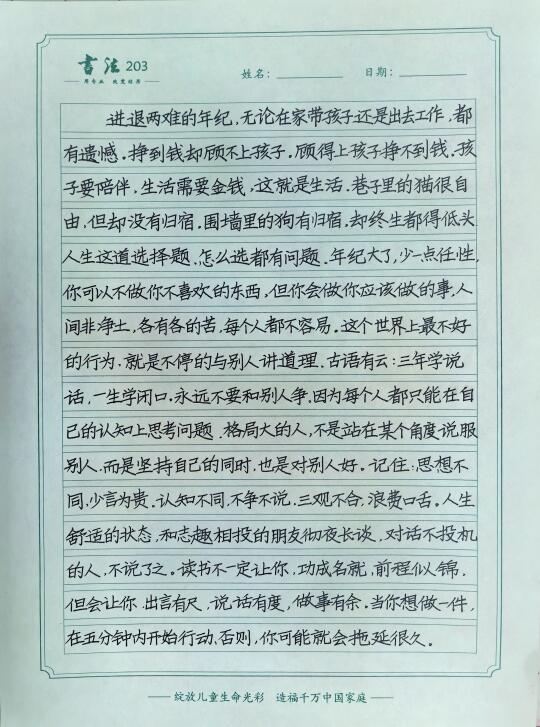 书法 203
姓名：
日期：
进退两难的年纪，无论在家带孩子还是出去工作，都
有遗憾．挣到钱却顾不上孩子．顾得上孩子挣不到钱．孩
子要陪伴，生活需要金钱，这就是生活．巷子里的猫很自
由，但却没有归宿．围墙里的狗有归宿．却终生都得低头
人生这道选择题．怎么选都有问题．年纪大了，少一点任性，
你可以不做你不喜欢的东西，但你会做你应该做的事，人
间非净土，各有各的苦，每个人都不容易．这个世界上最不好
的行为，就是不停的与别人讲道理．古语有云：三年学说
话，一生学闭口．永远不要和别人争．因为每个人都只能在自
己的认知上思考问题．格局大的人，不是站在某个角度说服
别人，而是坚持自己的同时，也是对别人好．记住：思想不
同，少言为贵．认知不同，不争不说，三观不合，浪费口舌．人生
舒适的状态，和志趣相投的朋友彻夜长谈，对话不投机
的人，不说了之．读书不一定让你，功成名就，前程似锦．
但会让你．出言有尺，说话有度，做事有余．当你想做一件，
在五分钟内开始行动，否则，你可能就会拖延很久。
绽放儿童生命光彩 造福千万中国家庭